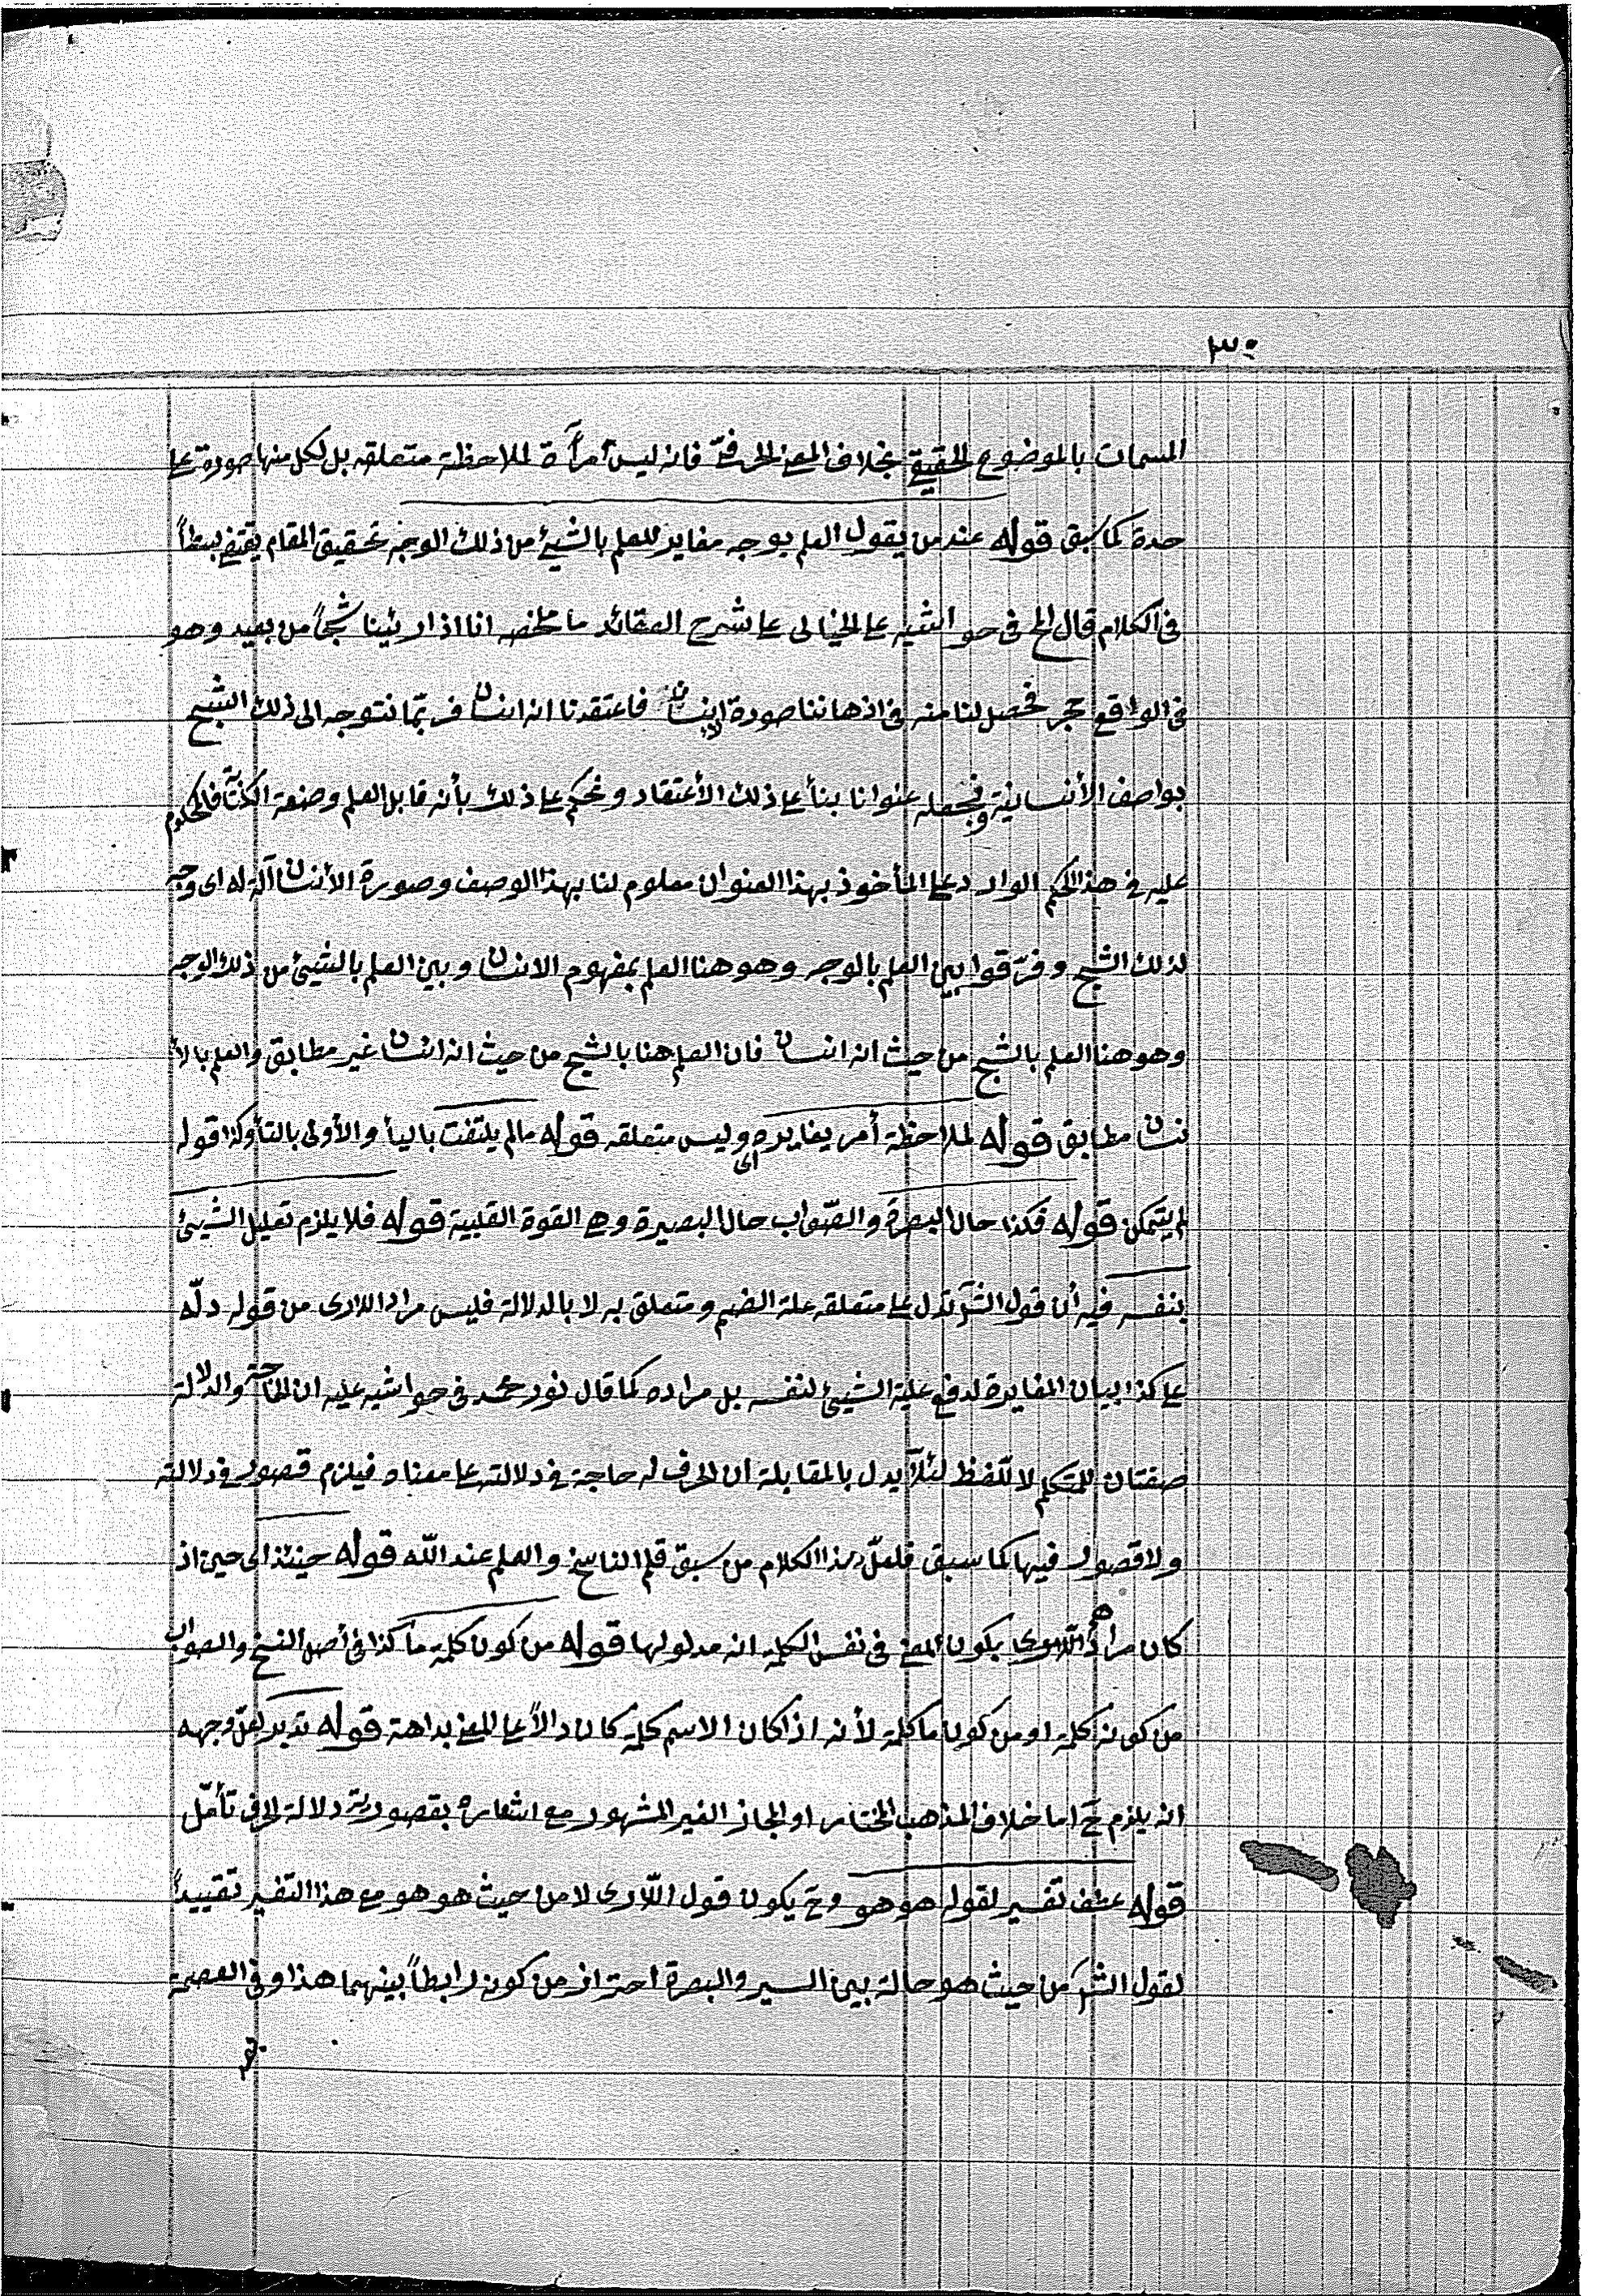 ٣٠
المسمات بالموضوع الحقيقي بخلاف المعنى الحرفيّ فانه ليس أمرأة لملاحظة متعلقه بل لكل منها صورة على
حدة كما سبق قوله عند من يقول العلم بوجه مغاير للعلم بالشيئ من ذلك الوجه تحقيق المقام يقتضي بسطاً
في الكلام قال الخ في حواشيه على الخيالى على شرح العقائد ما ملخصه انا اذا رئينا شبحاً من بعيد وهو
في الواقع حجر فحصل لنا منه في اذهاننا صورة انسان فاعتقدنا انه انسان فربّما نتوجه الى ذلك الشبح
بواصف الأنسانية ونجعله عنوانا بنأ على ذلك الأعتقاد ونحكم على ذلك بأنه قابل العلم وصنعة الكتابة فالمحكوم
عليه في هذا الحكم الوارد على المأخوذ بهذا العنوان معلوم لنا بهذا الوصف وصورة الأنسان آلة له اى وجه
لذلك الشبح وفرّقوا بين العلم بالوجه وهو هنا العلم بمفهوم الانسان وبين العلم بالشيئ من ذلك الوجه
وهو هنا العلم بالشبح من حيث انه انسان فان العلم هنا بالشبح من حيث انه انسان غير مطابق والعلم بالأ
نسان مطابق قوله لملاحظة أمر يغايره اى وليس متعلقه قوله مالم يلتفت باليأ والأولى بالتأ وكذا قوله
لم يتمكن قوله فكذا حال البصرة والصّواب حال البصيرة وهى القوة القلبية قوله فلا يلزم تعليل الشيئ
بنفسه فيه أن قول الشر تدل على متعلقه علة الضم ومتعلق به لا بالدلالة فليس مراد اللارى من قوله دلّه
على كذا بيان المغايرة لدفع علية الشيئ لنفسه بل مراده كما قال نور محمد في حواشيه عليه ان الحاجة والدلالة
صفتان للمتكلم لا للّفظ لئلّا يدل بالمقابلة ان الحرف له حاجة في دلالته على معناه فيلزم قصور في دلالته
ولا قصور فيها كما سبق فلعلّ هذا الكلام من سبق قلم الناسخ والعلم عند الله قوله حينئذ اى حين اذ
كان مراد اللارى بكون المعنى في نفس الكلمة انه مدلولها قوله من كون كلمة ما كذا في أصل النسخ والصواب
من كونه كلمة او من كون ما كلمة لأنه اذا كان الاسم كلمة كان دالاً على المعنى بداهة قوله تدبر لعلّ وجهه
انه يلزم ح اما خلاف المذهب المختار او المجاز الغير المشهور مع اشعاره بقصورية دلالة الحرف تأمّل
قوله عطف تفسير لقوله هو هو وح يكون قول اللّارى لا من حيث هو هو مع هذا التفسير تقييداً
لقول الشر من حيث هو حالة بين السير والبصرة احتراز من كونه رابطاً بينهما هذا وفي العصمة